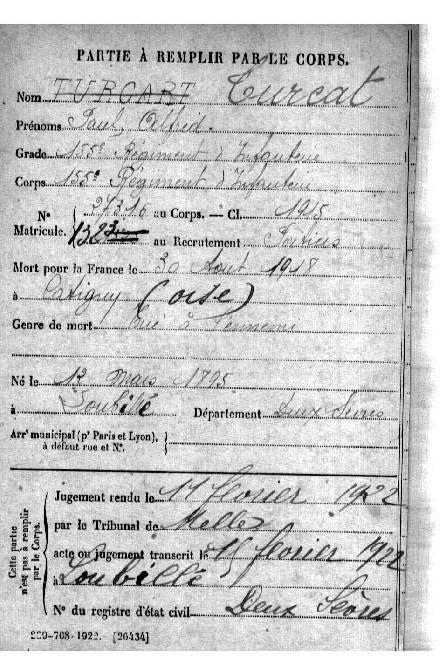 PARTIE À REMPLIR PAR LE CORPS.
Nom TURCART Turcat
Prénoms Paul, Alfred.
Grade 155e Régiment d'Infanterie
Corps 155e Régiment d'Infanterie
N° 27316 au Corps. — Cl. 1915
Matricule. 132 au Recrutement Poitiers
Mort pour la France le 30 Aout 1918
à Catigny (oise)
Genre de mort Tué à l'ennemi
Né le 12 mars 1895
à Loubillé Département Deux Sèvres
Arrt municipal (pr Paris et Lyon),
à défaut rue et N°.
Cette partie n'est pas à remplir par le Corps.
Jugement rendu le 11 février 1922
par le Tribunal de Melle
acte ou jugement transcrit le février 1922
à Loubillé
N° du registre d'état civil Deux Sèvres
-708-1922. [26434]